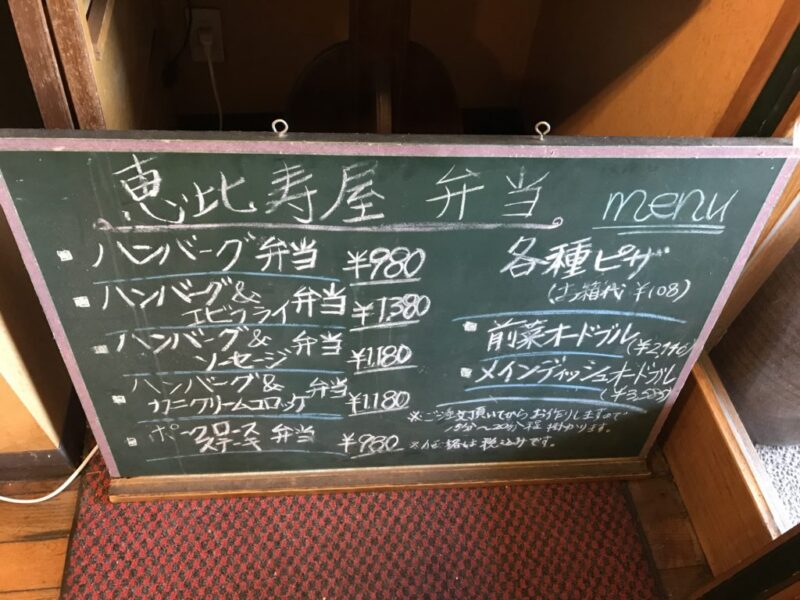 恵比寿屋 弁当 menu
ハンバーグ弁当 ¥980
ハンバーグ&
エビフライ 弁当 ¥1,380
ハンバーグ&
ソーセージ 弁当 ¥1,180
ハンバーグ&
カニクリームコロッケ 弁当 ¥1,180
ポークロース
ステーキ 弁当 ¥980
各種ピザ
箱代 ¥108)
前菜オードブル
メインディッシュオードブル
※ご注文頂いてからお作りしますので
20分程掛かります。
税込みです。